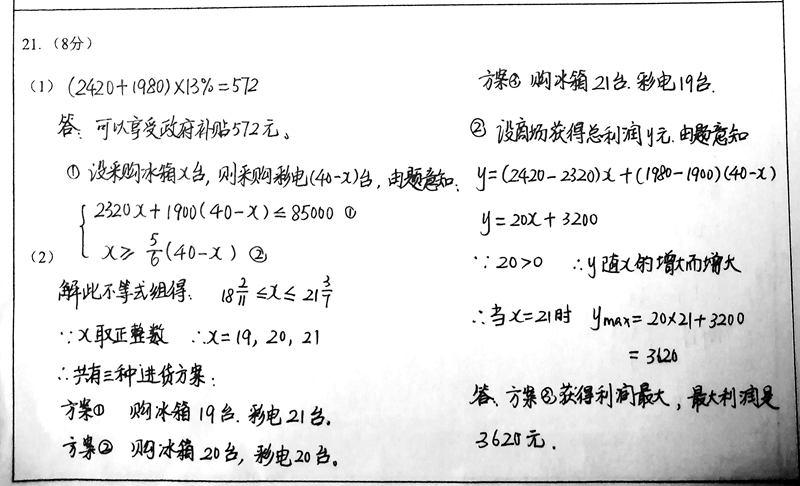 21.（8分）
（1） (2420+1980)×13%=572
答：可以享受政府补贴572元。
① 设采购冰箱x台，则采购彩电(40-x)台，由题意知：
2320x+1900(40-x)≤85000 ①
（2） x≥5/6(40-x) ②
解此不等式组得： 18 2/11≤x≤21 3/7
∵x取正整数 ∴x=19，20，21
∴共有三种进货方案：
方案① 购冰箱19台．彩电21台．
方案② 购冰箱20台，彩电20台．
方案③ 购冰箱21台．彩电19台．
② 设商场获得总利润y元．由题意知
y=(2420-2320)x+(1980-1900)(40-x)
y=20x+3200
∵20>0 ∴y随x的增大而增大
∴当x=21时 ymax=20×21+3200
=3620
答．方案③获得利润最大，最大利润是
3620元．